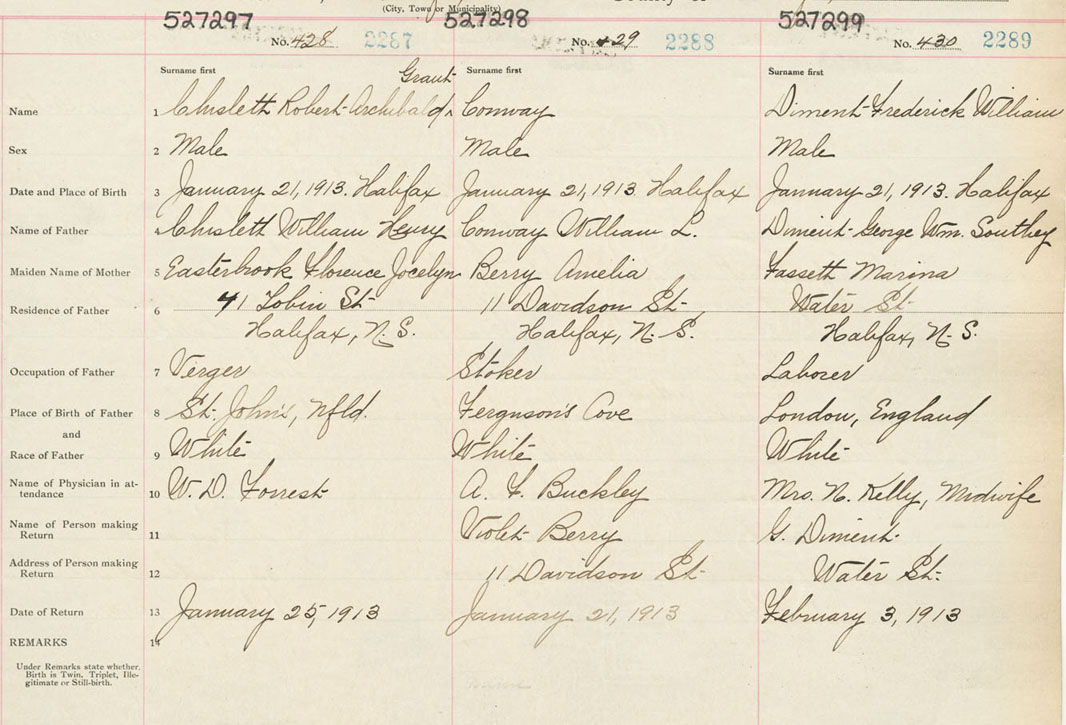 (City, Town or Municipality)
527297 527298 527299
No. 428 2287 No. 429 2288 No. 430 2289
Surname first Grant Surname first Surname first
Name 1 Chisleth Robert Archibald Conway Diment Frederick William
Sex 2 Male Male Male
Date and Place of Birth 3 January 21, 1913. Halifax January 21, 1913 Halifax January 21, 1913. Halifax
Name of Father 4 Chisleth William Henry Conway William L. Diment George Wm. Southey
Maiden Name of Mother 5 Easterbrook Florence Jocelyn Berry Amelia Fasseth Marina
Residence of Father 6 41 Tobin St 11 Davidson St Water St
Halifax, N.S. Halifax, N.S. Halifax, N.S.
Occupation of Father 7 Verger Stoker Laborer
Place of Birth of Father 8 St. John's, Nfld. Ferguson's Cove London, England
and
Race of Father 9 White White White
Name of Physician in at-
tendance 10 W. D. Forrest A. F. Buckley Mrs. N. Kelly, Midwife
Name of Person making
Return 11 Violet Berry G. Diment
Address of Person making
Return 12 11 Davidson St Water St.
Date of Return 13 January 25, 1913 January 21, 1913 February 3, 1913
REMARKS 14
Under Remarks state whether
Birth is Twin, Triplet, Ille-
gitimate or Still-birth.